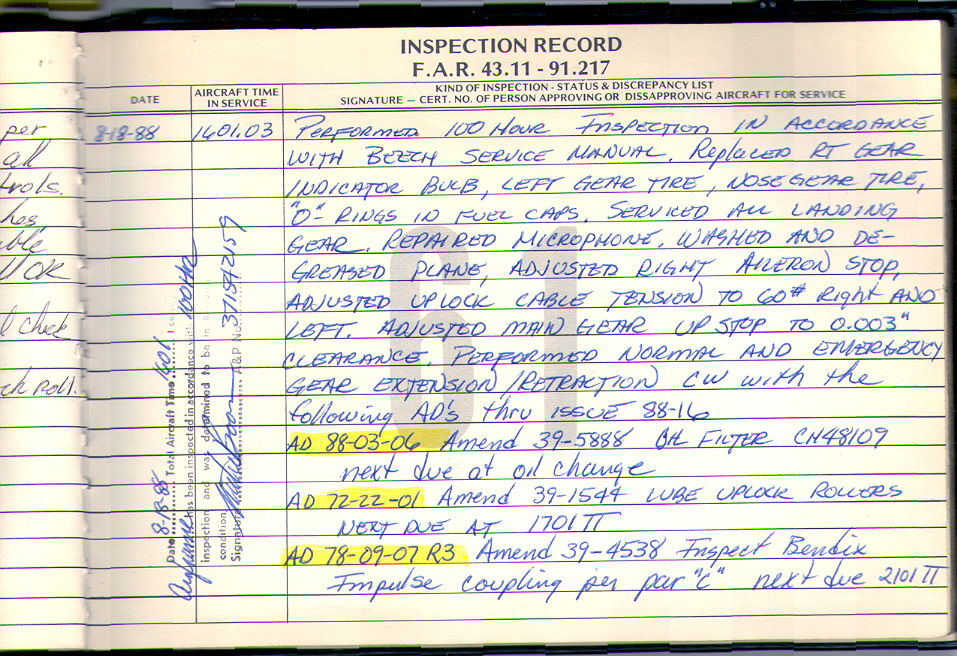 INSPECTION RECORD
F.A.R. 43.11 - 91.217
DATE
AIRCRAFT TIME
IN SERVICE
KIND OF INSPECTION - STATUS & DISCREPANCY LIST
SIGNATURE — CERT. NO. OF PERSON APPROVING OR DISAPPROVING AIRCRAFT FOR SERVICE
8-18-88 1601.03 PERFORMED 100 HOUR INSPECTION IN ACCORDANCE
WITH BEECH SERVICE MANUAL. Replaced RT GEAR
INDICATOR BULB, LEFT GEAR TIRE, NOSE GEAR TIRE,
"O"- RINGS IN FUEL CAPS. SERVICED ALL LANDING
GEAR. REPAIRED MICROPHONE. WASHED AND DE-
GREASED PLANE, ADJUSTED RIGHT AILERON STOP,
ADJUSTED UPLOCK CABLE TENSION TO 60# Right AND
LEFT. ADJUSTED MAIN GEAR UP STOP TO 0.003"
CLEARANCE. PERFORMED NORMAL AND EMERGENCY
GEAR EXTENSION/RETRACTION CW with the
following AD's thru ISSUE 88-16
AD 88-03-06 Amend 39-5888 OIL FILTER CH48109
next due at oil change
AD 72-22-01 Amend 39-1544 LUBE UPLOCK ROLLERS
NEXT DUE AT 1701 TT
AD 78-09-07 R3 Amend 39-4538 Inspect Bendix
Impulse coupling per par "C" next due 2101 TT
61
Date 8-18-88 Total Aircraft Time 1601 I
has been inspected in accordance with 100HR
inspection and was determined to be in
condition.
Signature A&P No. 371542159
per
all
trols.
hes
ble
ll OK
l check
ch roll.